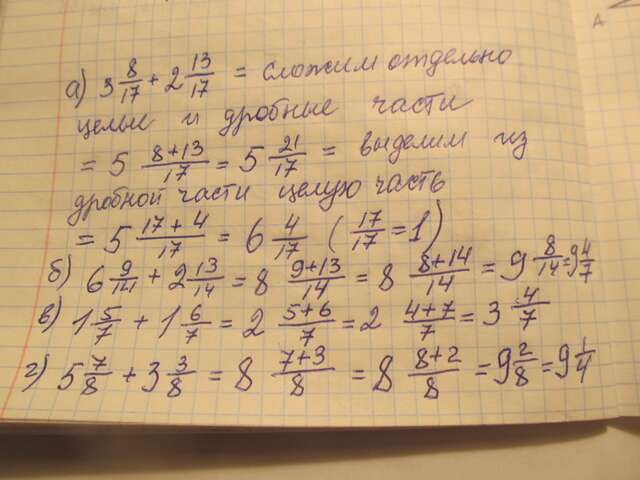 а) 3 8/17 + 2 13/17 = сложим отдельно
целые и дробные части
= 5 8+13/17 = 5 21/17 = выделим из
дробной части целую часть
= 5 17+4/17 = 6 4/17 (17/17 = 1)
б) 6 9/14 + 2 13/14 = 8 9+13/14 = 8 8+14/14 = 9 8/14 = 9 4/7
в) 1 5/7 + 1 6/7 = 2 5+6/7 = 2 4+7/7 = 3 4/7
г) 5 7/8 + 3 3/8 = 8 7+3/8 = 8 8+2/8 = 9 2/8 = 9 1/4